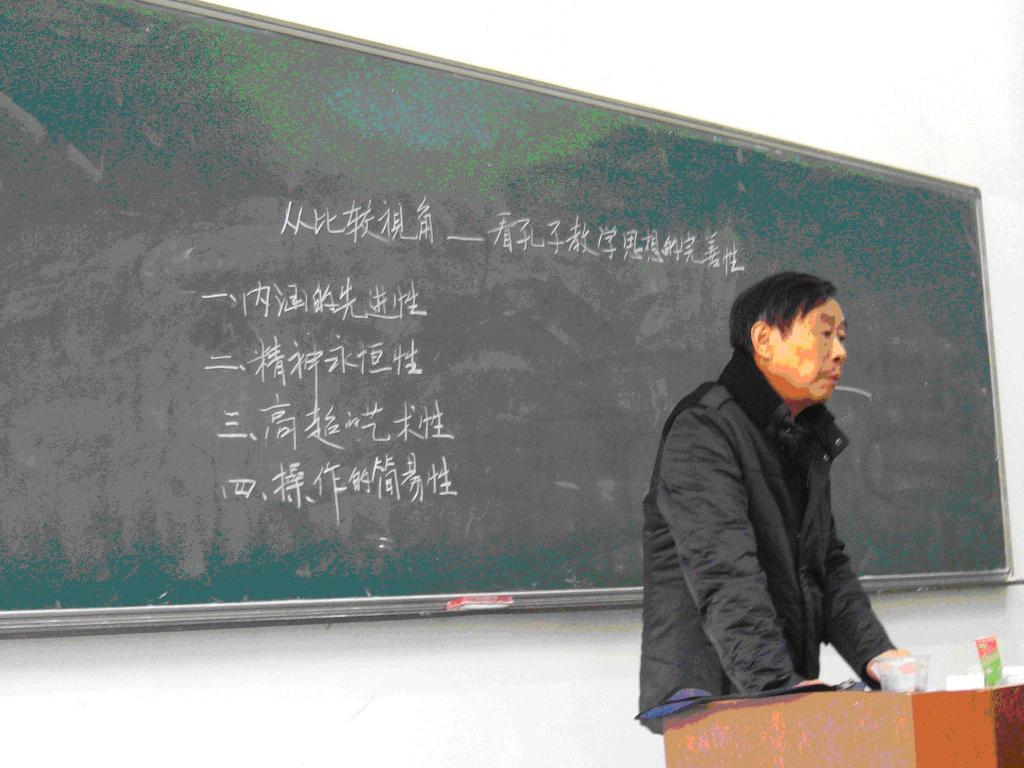 从比较视角—看孔子教学思想的完善性
一、内涵的先进性
二、精神永恒性
三、高超的艺术性
四、操作的简易性